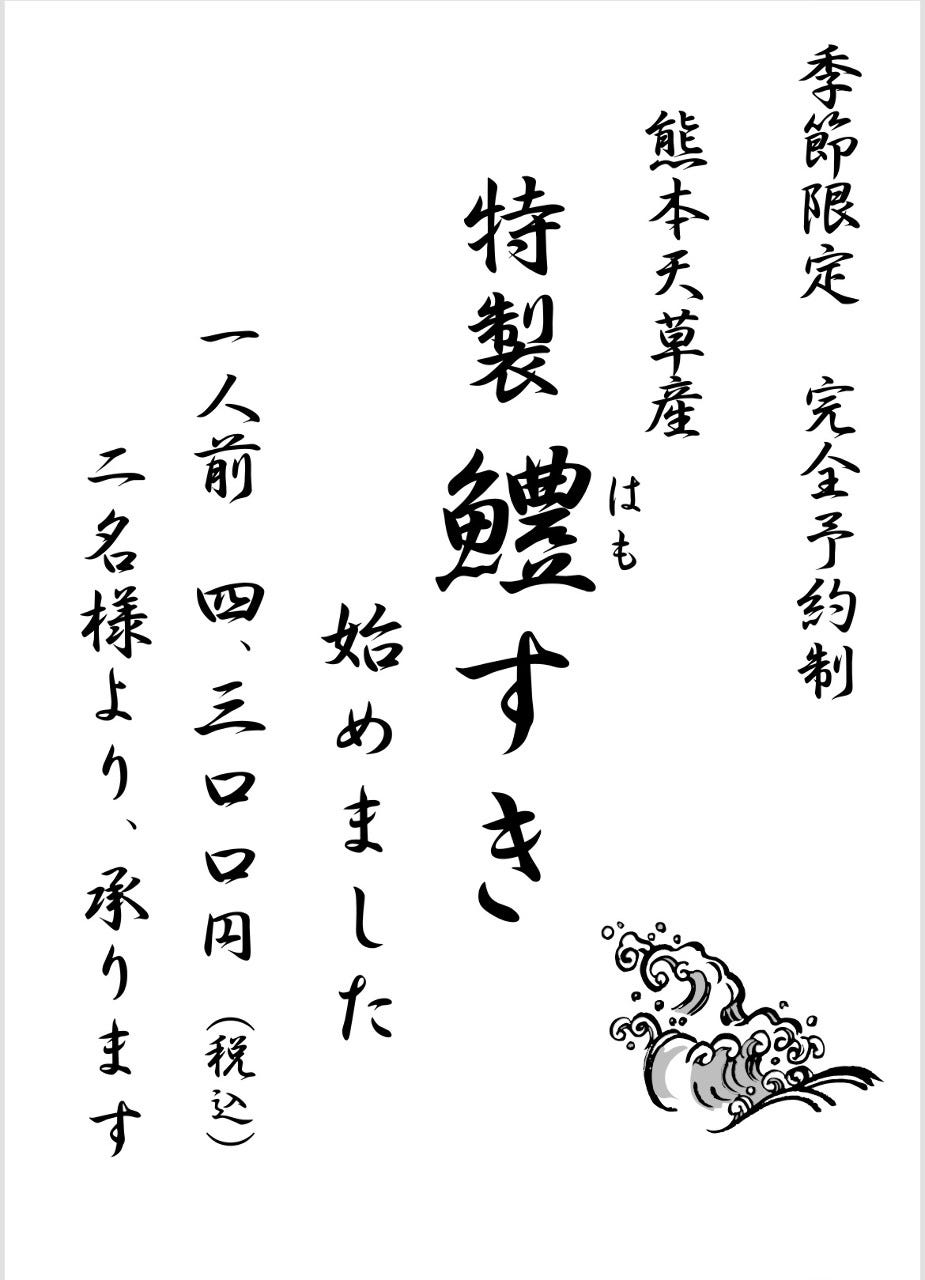 季節限定　完全予約制
熊本天草産
はも
特製鱧すき
始めました
一人前　四、三〇〇円（税込）
二名様より、承ります